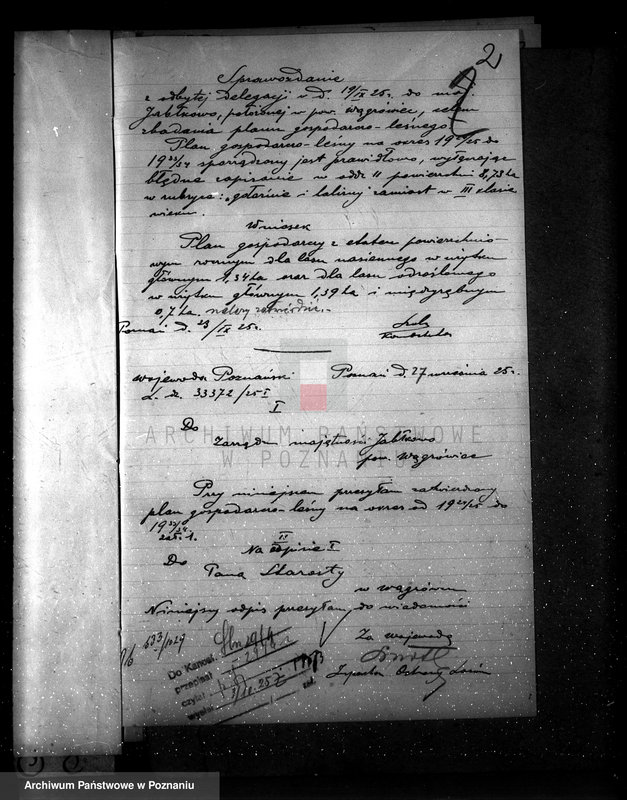 2
Sprawozdanie
z odbytej delegacji w d. 19/IX 25r. do maj.
Jabłkowo, położonej w pow. wągrówiec, celem
zbadania planu gospodarczo-leśnego.
Plan gospodarczo-leśny na okres 1924/25 do
1933/34 sporządzony jest prawidłowo, wyłączając
błędne zapisanie w oddz. 11 powierzchni 8,73 ha
w rubryce: "gołoźnie i haliny zamiast w III klasie
wieku.
Wniosek
Plan gospodarczy z etatem powierzchnio-
wym rocznym dla lasu nasiennego w użytku
głównym 1,34 ha oraz dla lasu odroślowego
w użytku głównym 1,39 ha i międzyrębnym
0,7 ha. należy zatwierdzić.
Poznań d. 23/IX 25r.
Wojewoda Poznański Poznań d. 27 września 25r.
L. dz. 33372/25 I
I
Do
Zarządu majętności Jabłkowo
pow. Wągrówiec
Przy niniejszem przesyłam zatwierdzony
plan gospodarczo-leśny na okres od 1924/25 do
1933/34
zał. 1.
II
Na odpisie I
Do
Pana Starosty
w Wągrówcu
Niniejszy odpis przesyłam do wiadomości
633/1029
Za wojewodę
Inspektor Ochrony Lasów
Do Kancel.
przepisał
czytał
wysłał
ARCHIWUM PAŃSTWOWE
W POZNANIU
Archiwum Państwowe w Poznaniu